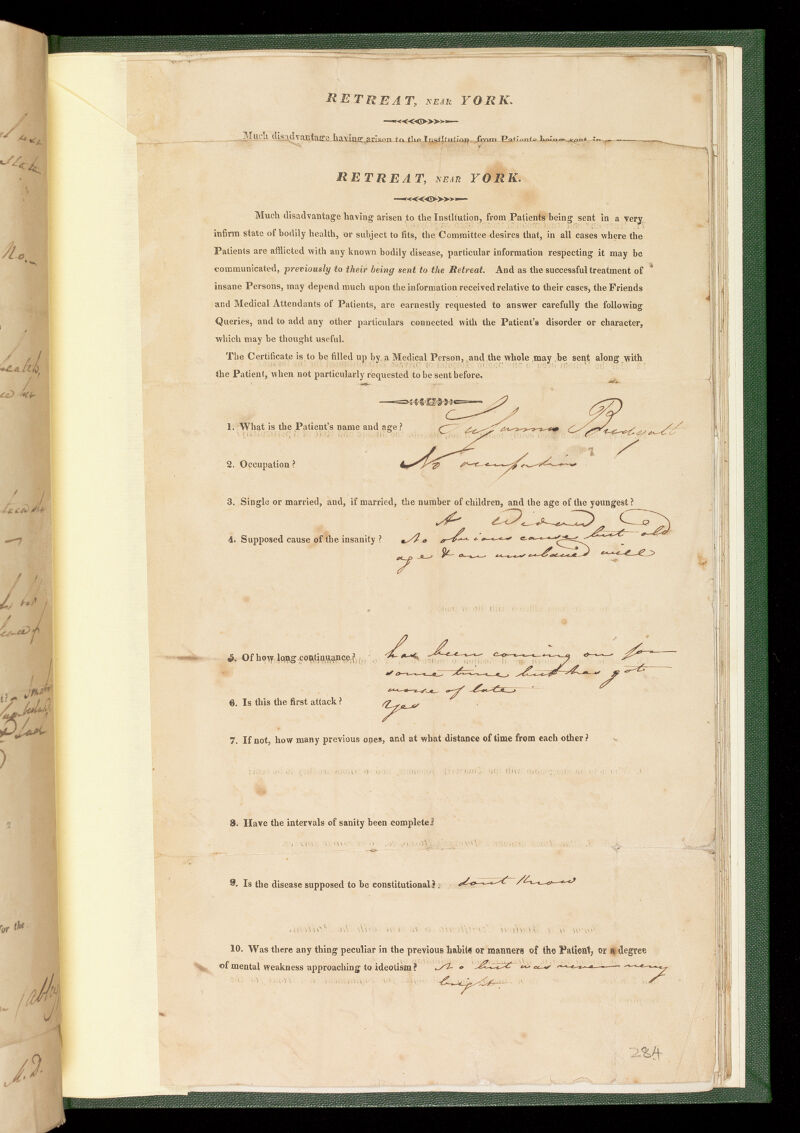 RETREAT, NEAR YORK.
Much disadvantage having arisen to the Institution, from Patients being sent in a
RETREAT, NEAR YORK.
Much disadvantage having arisen to the Institution, from Patients being sent in a very
infirm state of bodily health, or subject to fits, the Committee desires that, in all cases where the
Patients are afflicted with any known bodily disease, particular information respecting it may be
communicated, previously to their being sent to the Retreat. And as the successful treatment of
insane Persons, may depend much upon the information received relative to their cases, the Friends
and Medical Attendants of Patients, are earnestly requested to answer carefully the following
Queries, and to add any other particulars connected with the Patient's disorder or character,
which may be thought useful.
The Certificate is to be filled up by a Medical Person, and the whole may be sent along with
the Patient, when not particularly requested to be sent before.
1. What is the Patient's name and age? Susanna
2. Occupation? No occupation
3. Single or married, and, if married, the number of children, and the age of the youngest?
A Widow
4. Supposed cause of the insanity? No obvious cause but old
age & an unsubdued will
5. Of how long continuance? has been coming on for
some time but has got
worse of late
6. Is this the first attack? Yes
7. If not, how many previous ones, and at what distance of time from each other?
8. Have the intervals of sanity been complete?
9. Is the disease supposed to be constitutional? dont know
10. Was there any thing peculiar in the previous habits or manners of the Patient, or a degree
of mental weakness approaching to ideotism? No but was never very
bright.
284
No.
for the
M.D.